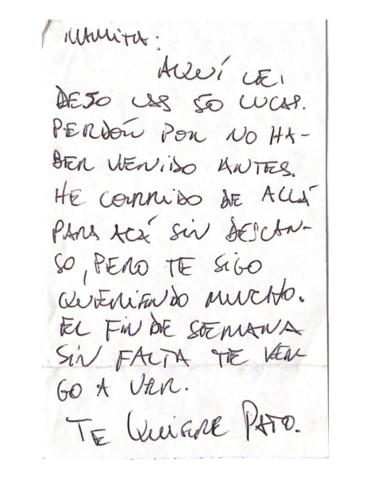 MAMITA:
AQUÍ LE
DEJO LAS 50 LUCAS.
PERDÓN POR NO HA-
BER VENIDO ANTES.
HE CORRIDO DE ALLÁ
PARA ACÁ SIN DESCAN-
SO, PERO TE SIGO
QUERIENDO MUCHO.
EL FIN DE SEMANA
SIN FALTA TE VEN-
GO A VER.
TE QUIERE PATO.